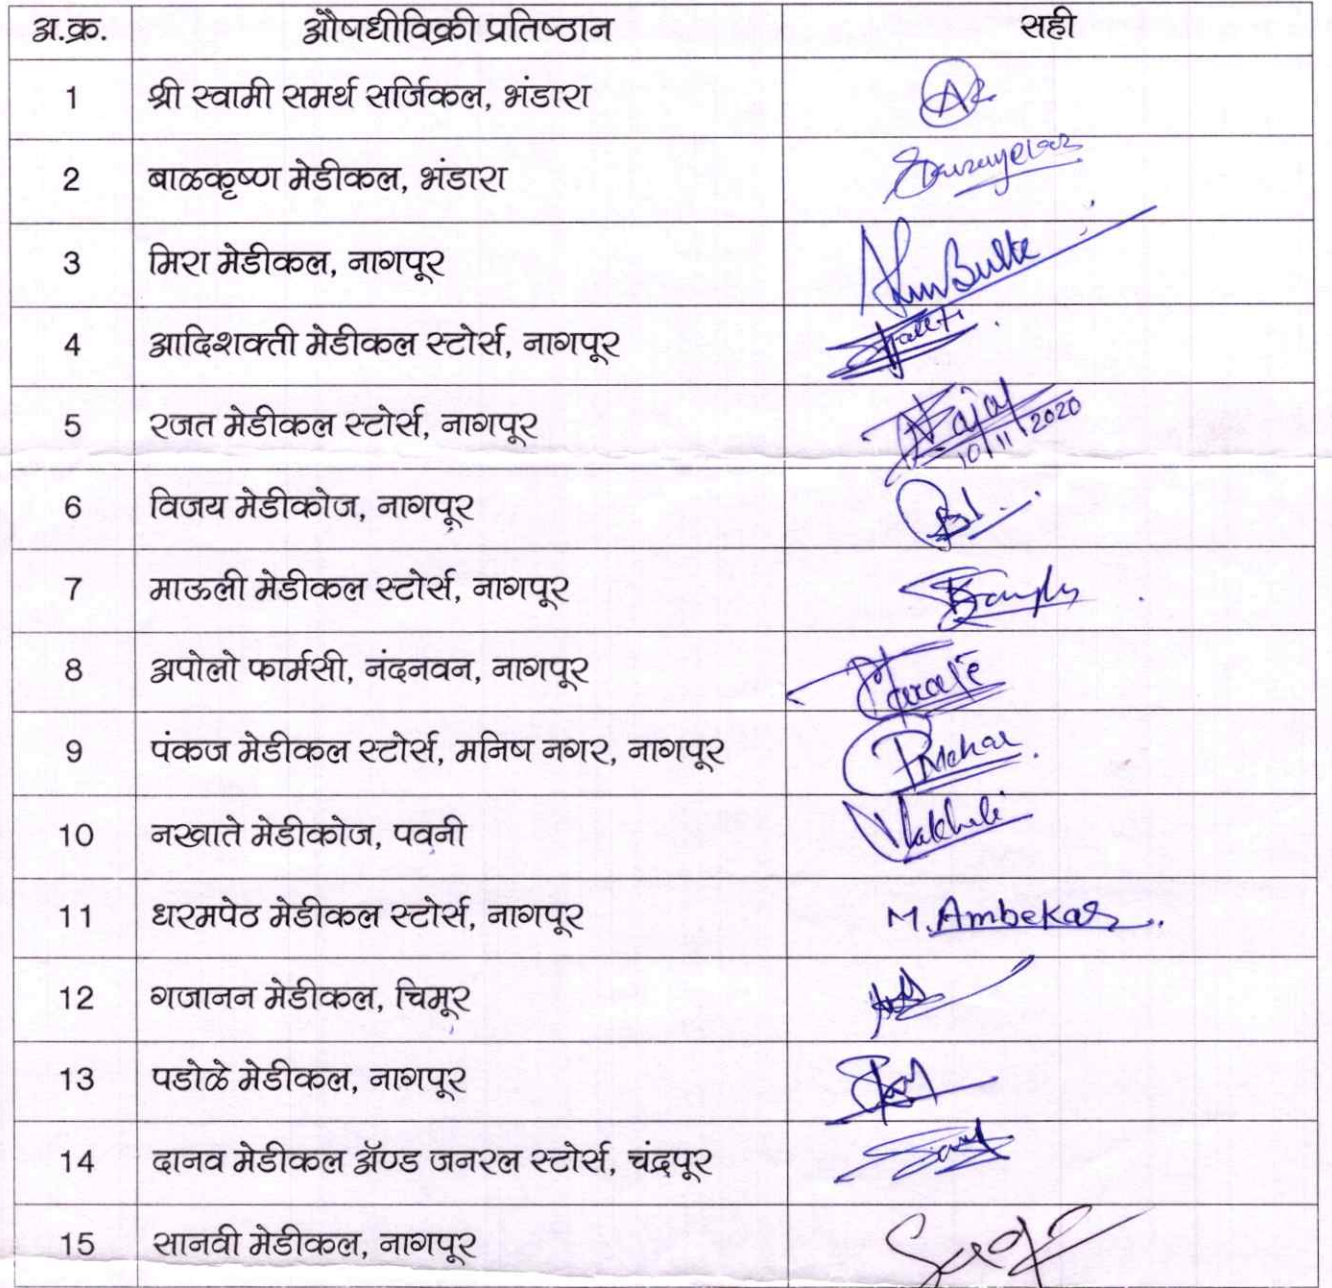 अ.क्र. औषधीविक्री प्रतिष्ठान सही
1 श्री स्वामी समर्थ सर्जिकल, भंडारा
2 बाळकृष्ण मेडीकल, भंडारा
3 मिरा मेडीकल, नागपूर
4 आदिशक्ती मेडीकल स्टोर्स, नागपूर
5 रजत मेडीकल स्टोर्स, नागपूर 10/11/2020
6 विजय मेडीकोज, नागपूर
7 माऊली मेडीकल स्टोर्स, नागपूर
8 अपोलो फार्मसी, नंदनवन, नागपूर
9 पंकज मेडीकल स्टोर्स, मनिष नगर, नागपूर
10 नखाते मेडीकोज, पवनी
11 धरमपेठ मेडीकल स्टोर्स, नागपूर M. Ambekar
12 गजानन मेडीकल, चिमूर
13 पडोळे मेडीकल, नागपूर
14 दानव मेडीकल ॲण्ड जनरल स्टोर्स, चंद्रपूर
15 सानवी मेडीकल, नागपूर